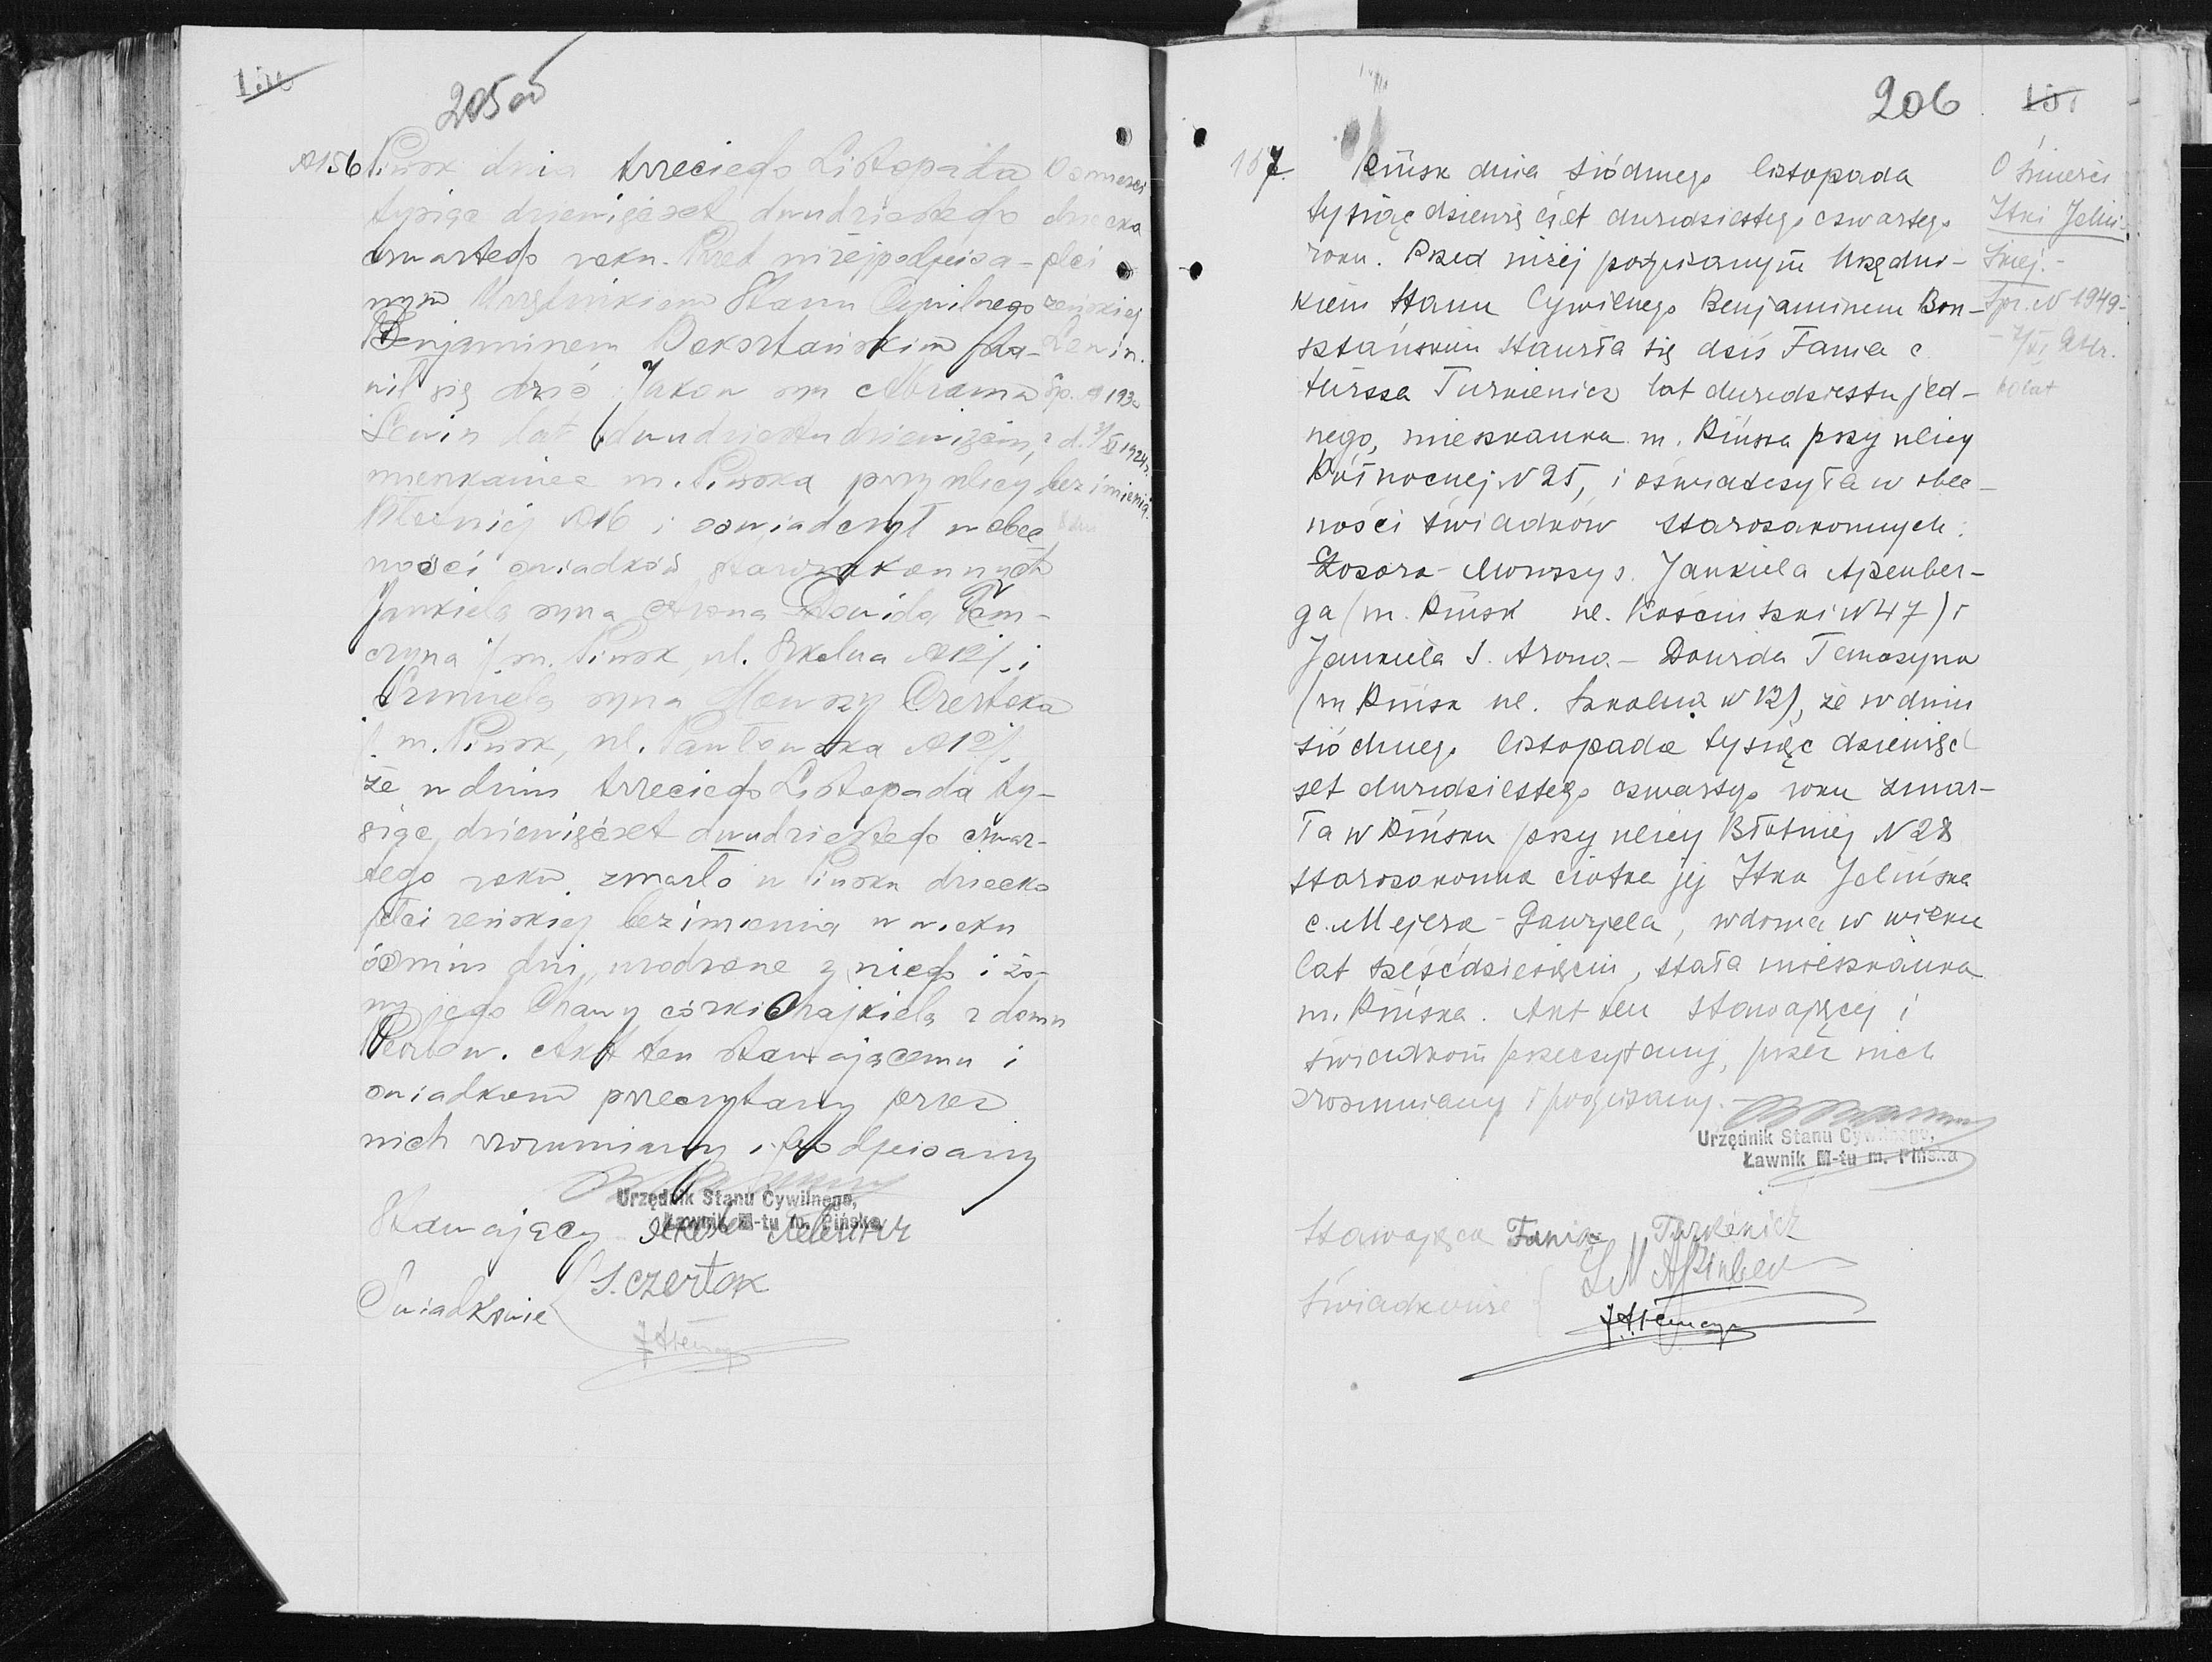 205 об
№156 Pińsk dnia trzeciego Listopada
tysiąc dziewięćset dwudziestego
czwartego roku. Przed niżej podpisa-
nym Urzędnikiem Stanu Cywilnego
Benjaminem Boksztańskim sta-
wił się dziś Jakow syn Abrama
Lewin lat dwudziestu dziewięciu,
mieszkaniec m. Pińska przy ulicy
Błotnej №16 i oswiadczył w obec-
ności swiadków starozakonnych
Jankiela syna Arona Dawida Tem-
czyna /m. Pińsk, ul. Szkolna №12/ i
Szmuela syna Mowszy Czertoka
/m. Pińsk, ul. Pawłowska №12/,
że w dniu trzeciego Listopada ty-
siąc dziewięćset dwudziestego czwar-
tego roku zmarło w Pińsku dziecko
płci żeńskiej bezimienna w wieku
ósmiu dni, urodzone z niego i żo-
ny jego Chawy córki Chajkiela z domu
Akt ten stawającemu i
swiadkom przeczytany przez
nich zrozumiany i podpisany
Urzędnik Stanu Cywilnego,
Ławnik M-tu m. Pińska
Stawający
Swiadkowie S. Czertok
O smerci
dziecka
płci
żeńskiej
Lewin.
Sp. № 193
z d. 3/XI 1924 r.
bezimienia.
206
157. Pińsk dnia siódmego listopada
tysiąc dziewięćset dwudziestego czwartego
roku. Przed niżej podpisanym Urzędni-
kiem Stanu Cywilnego Benjaminem Bok-
sztańskim stawiła się dziś Fania c.
Hirsza Turkienicz lat dwudziestu jed-
nego, mieszkanka m. Pińska przy ulicy
Północnej N 25, i oświadczyła w obec-
ności świadków starozakonnych:
Łozora-Mowszy s. Jankiela Apzenber-
ga (m. Pińsk ul. Kościuszki N 47) i
Jankiela s. Arona-Dawida Temczyna
(m Pińsk ul. Szkolna N 12), że w dniu
siódmego listopada tysiąc dziewięć
set dwudziestego czwartego roku zmar-
ła w Pińsku przy ulicy Błotniej N 28
starozakonna ciotka jej Itka Jelińska
c. Mejera-Gawrjela, wdowa w wieku
lat sześćdziesięciu, stała mieszkanka
m. Pińska. Akt ten stawającej i
świadkom przeczytany, przez nich
zrozumiany i podpisany.
Urzędnik Stanu Cywilnego,
Ławnik M-tu m. Pińska
Stawająca Fania Turkenicz
Świadkowie
O śmierci
Itki Jeliń-
skiej.-
Spr. N 1949-
7/XI 24 r.
60 lat